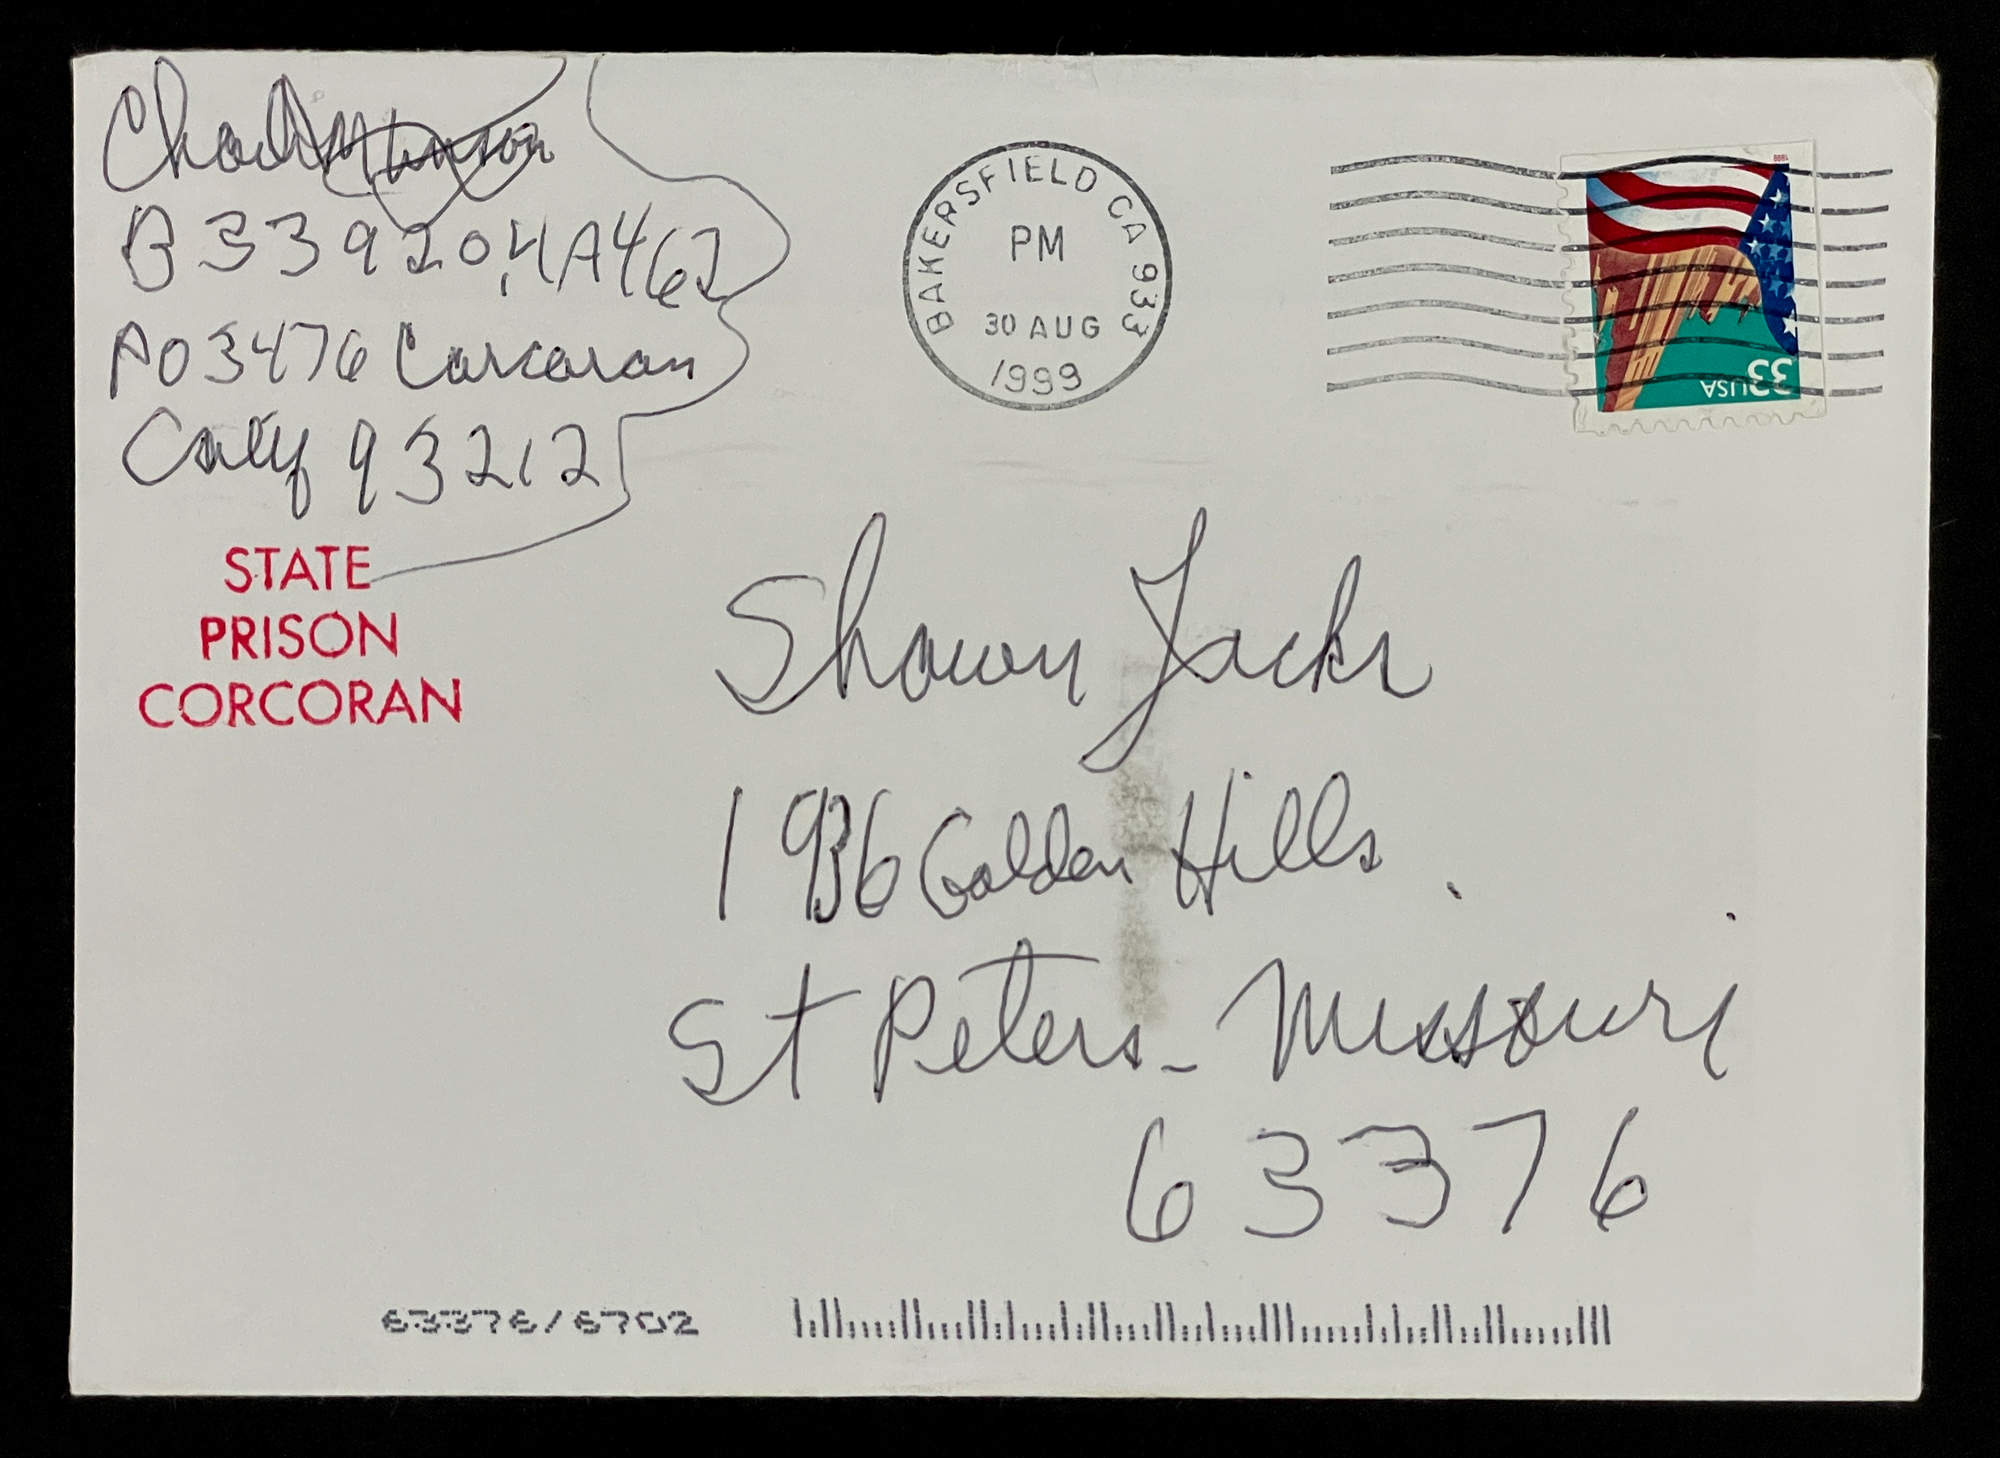 Chas Manson
B33920, 4A462
PO 3476 Corcoran
Calif 93212
STATE
PRISON
CORCORAN
BAKERSFIELD CA 933
PM
30 AUG
1999
1999
33
USA
Shawn Jacks
1936 Golden Hills
St Peters - Missouri
63376
63376/6702